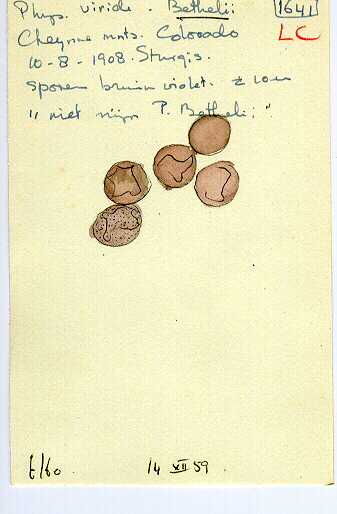 Phys. viride. Bethelii 1641
Cheyenne mnts. Colorado LC
10-8-1908. Sturgis.
sporen bruin violet. ± 10 m
" niet mijn P. Bethelii".
t/60 14 XII 59